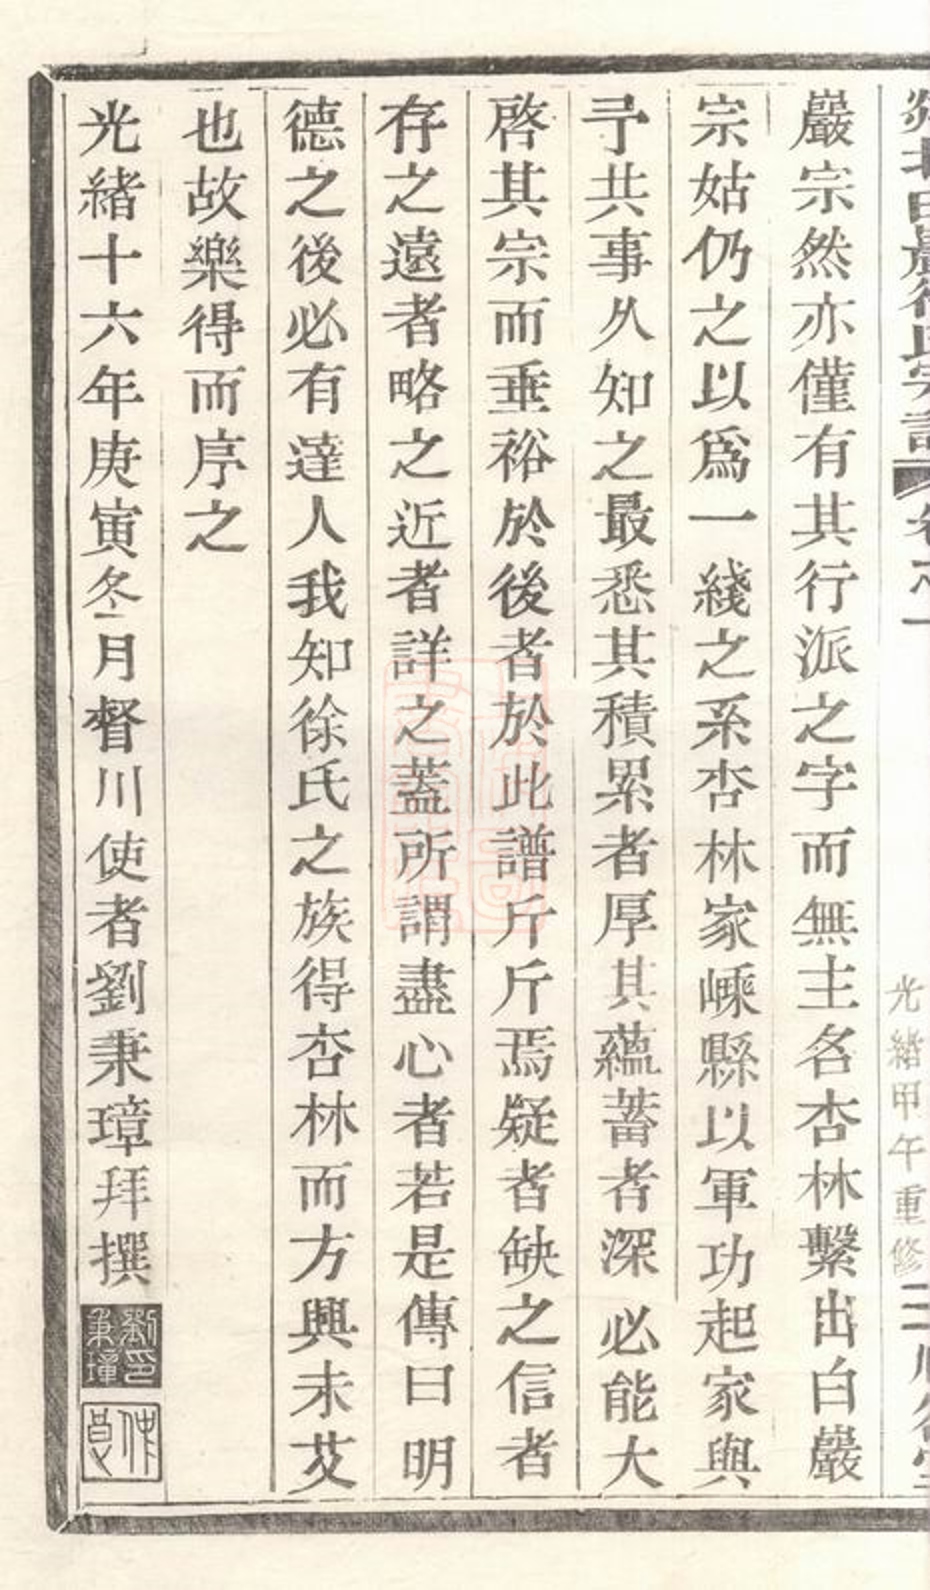 巖宗然亦僅有其行派之字而無主名杏林繫出白巖
宗姑仍之以爲一綫之系杏林家嵊縣以軍功起家與
予共事久知之最悉其積累者厚其蘊蓄者深必能大
啓其宗而垂裕於後者於此譜斤斤焉疑者缺之信者
存之遠者略之近者詳之蓋所謂盡心者若是傳曰明
德之後必有達人我知徐氏之族得杏林而方興未艾
也故樂得而序之
光緒十六年庚寅冬月督川使者劉秉璋拜撰
劉印秉璋
光緒甲午重修